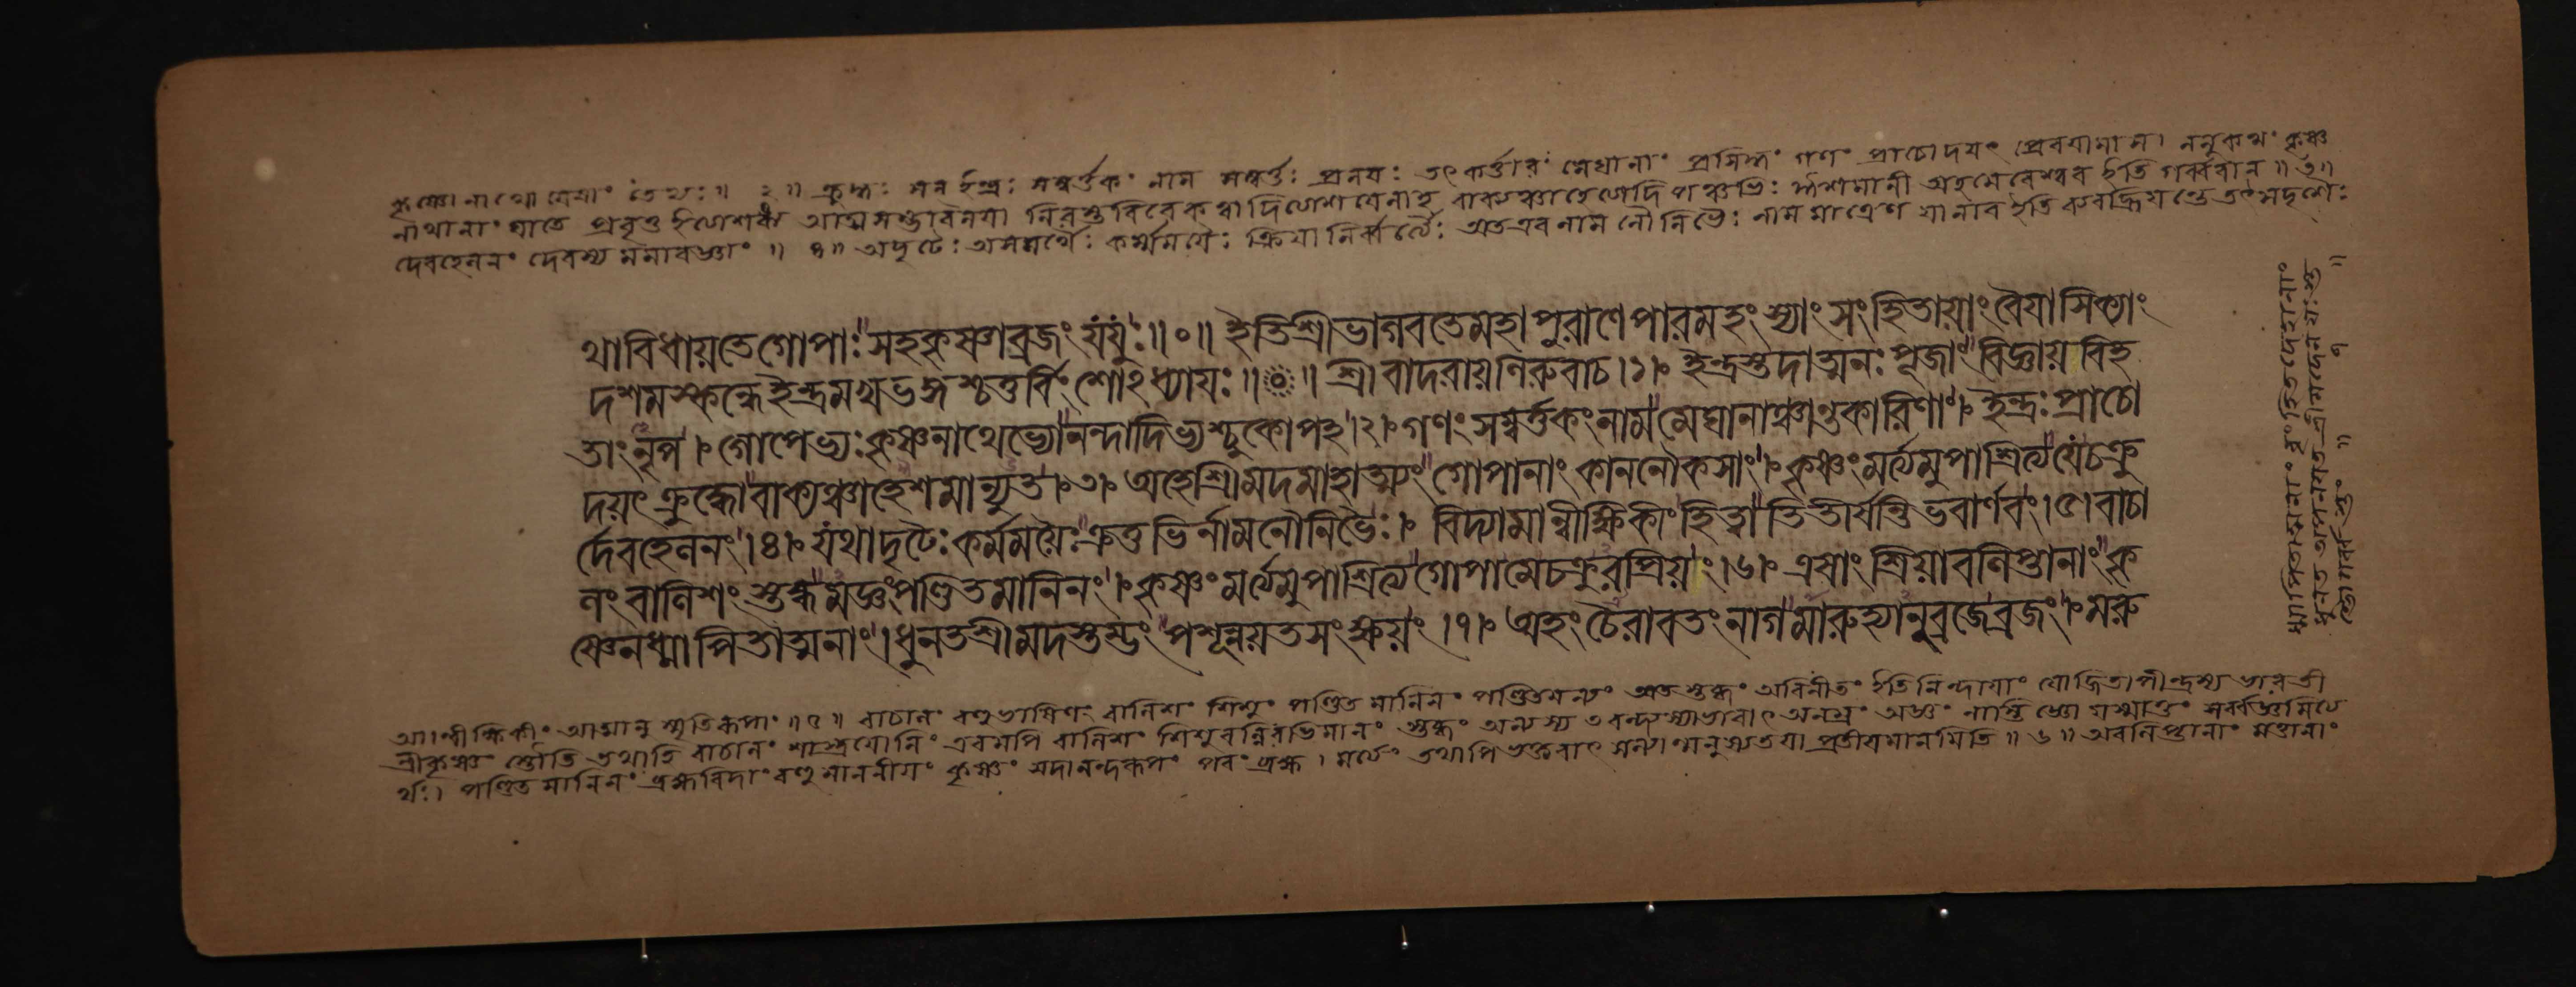 কৃষ্ণো নাথো যেষাং তেভ্যঃ ॥ ২ ॥ ক্রুদ্ধঃ সন ইন্দ্রঃ সম্বর্ত্তকং নাম সম্বর্ত্তঃ প্রলয়ঃ তৎকর্ত্তারং মেঘানাং প্রসিদ্ধং গণং প্রাচোদয়ৎ প্রেরযামাস। ননুকথং কৃষ্ণ
নাথানাং ঘাতে প্রবৃত্ত ইত্যাশঙ্ক্য আত্মসম্ভাবনযা নিরস্তবিবেক বাক্যঞ্চাহেত্যাদি পঞ্চভিঃ ঈশমানী অহমেবেশ্বর ইতি গর্ব্ববান ॥ ৩ ॥
দেবহেলনং দেবস্য মমাবজ্ঞাং ॥ ৪ ॥ অদৃঢৈঃ অসমর্থৈঃ কর্ম্মময়ৈঃ ক্রিযানির্ব্বর্ত্যৈঃ অতএব নাম নৌনিভৈঃ নামমাত্রেণ যা নাব ইতি তৎসদৃশৈঃ
থাবিধায়তেগোপাঃসহকৃষ্ণাব্রজংযযুঃ॥০॥ ইতিশ্রীভাগবতেমহাপুরাণেপারমহংস্যাংসংহিতায়াংবৈয়াসিক্যাং
দশমস্কন্ধেইন্দ্রমখভঙ্গশ্চতুর্বিংশোঽধ্যায়ঃ॥০॥ শ্রীবাদরায়নিরুবাচ।১। ইন্দ্রস্তদাত্মনঃপূজাংবিজ্ঞায়বিহ
তাংনৃপ। গোপেভ্যঃকৃষ্ণনাথেভ্যোনন্দাদিভ্যশ্চুকোপহ।২। গণংসম্বর্ত্তকংনামমেঘানাঞ্চান্তকারিণাং। ইন্দ্রঃপ্রাচো
দয়ৎক্রুদ্ধোবাক্যঞ্চাহেশমান্যুত।৩। অহোশ্রীমদমাহাত্ম্যংগোপানাংকাননৌকসাং। কৃষ্ণংমর্ত্যমুপাশ্রিত্যযেচক্রু
র্দেবহেলনং।৪। যথাদৃঢৈঃকর্মময়ৈঃক্রতুভির্নামনৌনিভৈঃ। বিদ্যামান্বীক্ষিকীংহিত্বাতিতীর্যন্তিভবার্ণবং।৫। বাচা
লংবালিশংস্তব্ধমজ্ঞংপণ্ডিতমানিনং। কৃষ্ণংমর্ত্যমুপাশ্রিত্যগোপামেচক্রুরপ্রিয়ং।৬। এষাংশ্রিয়াবলিপ্তানাংকৃ
ষ্ণেনধ্মাপিতাত্মনাং। ধুনতশ্রীমদস্তম্ভংপশূন্নয়তসংক্ষয়ং।৭। অহংচৈরাবতংনাগমারুহ্যানুব্রজেব্রজং। মরু
আন্বীক্ষিকীং আত্মানুস্মৃতিরূপাং ॥ ৫ ॥ বাচালং বহুভাষিণং বালিশং শিশুং পণ্ডিতমানিনং পণ্ডিতম্মন্যং অতস্তব্ধং অবিনীতং ইতিনিন্দাযাং যোজিতাপীন্দ্রস্য ভারতী
শ্রীকৃষ্ণং স্তৌতি তথাহি বাচালং শাস্ত্রযোনিং এবমপি বালিশং শিশুবন্নিরভিমানং স্তব্ধং অন্যস্য বন্দ্যস্যাভাবাৎ অনম্রং অজ্ঞং নাস্তি জ্ঞো যস্মাত্তং সর্ব্বজ্ঞমিত্য
র্থঃ। পণ্ডিতমানিনং ব্রহ্মবিদাং বহুমাননীয়ং কৃষ্ণং সদানন্দরূপং পরং ব্রহ্ম। মর্ত্যং তথাপি ভক্তবাৎ মনুষ্যতযা প্রতীযমানমিতি ॥ ৬ ॥ অবলিপ্তানাং মত্তানাং